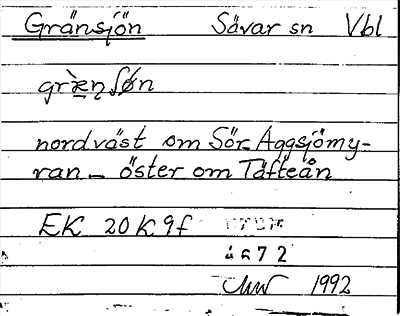 Gränsjön Sävar sn Vbl
nordväst om Sör-Aggsjömy-
ran – öster om Täfteån
EK 20 K 9f
4672
1992